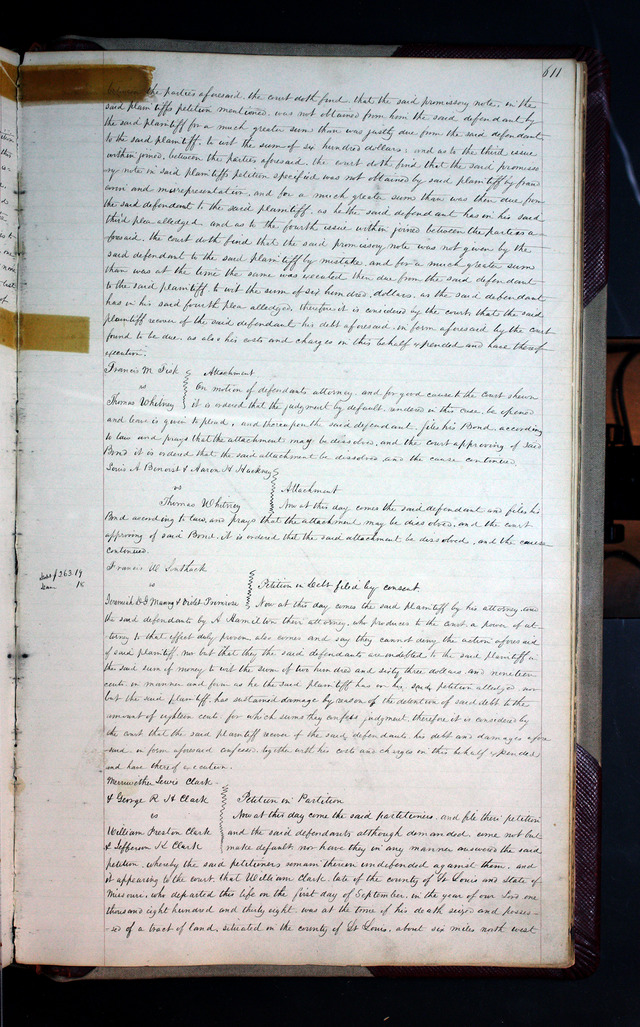 611
the parties aforesaid, the court doth find, that the said promissory note, in the
said plaintiffs petition mentioned, was not obtained from him the said defendant by
the said plaintiff for a much greater sum than was justly due from the said defendant
to the said plaintiff, to wit the sum of six hundred dollars; and as to the third issue
within joined, between the parties aforesaid, the court doth find that the said promisso
ry note in said plaintiffs petition specified was not obtained by said plaintiff by frau
and misrepresentation, and for a much greater sum than was then due from
the said defendant to the said plaintiff, as he the said defendant has in his said
third plea alledged, and as to the fourth issue within joined between the parties a
foresaid, the court doth find that the said promissory note was not given by the
said defendant to the said plaintiff by mistake and for a much greater sum
than was at the time the same was executed then due from the said defendant
to the said plaintiff, to wit the sum of six hundred dollars, as the said defendant
has in his said fourth plea alledged, therefore it is considered by the court that the said
plaintiff recover of the said defendant his debt aforesaid, in form aforesaid by the court
found to be due, as also his costs and charges in this behalf expended and have thereof
execution.
Francis M. Fisk Attachment
vs On motion of defendants attorney, and for good cause to the Court shewn
Thomas Whitney it is ordered that the judgment by default, in this case, be opened
and leave is given to plead, and thereupon the said defendant, files his Bond, according
to law and prays that the attachment may be dissolved, and the court approving of said
Bond it is ordered that the said attachment be dissolved, and the cause continued.
Louis A Benoist & Aaron H Hackney
vs Attachment
Thomas Whitney Now at this day comes the said defendant and files his
Bond according to law, and prays that the attachment may be dissolved, and the court
approving of said Bond, it is ordered that the said attachment be dissolved, and the cause
continued.
Francis W. Southack
Debt $263.19
Dam 18
vs Petition in Debt filed by consent.
Jeremiah D G Maury & Primrose Now at this day comes the said plaintiff by his attorney, and
the said defendants by A Hamilton their attorney, who produces to the court a power of at-
torney to that effect duly proven, also comes and say they cannot deny the action aforesaid
of said plaintiff, nor but that they the said defendants are indebted to the said plaintiff in
the said sum of money to wit the sum of two hundred and sixty three dollars and nineteen
cents in manner and form as he the said plaintiff has in his said petition alledged, nor
but the said plaintiff has sustained damage by reason of the detention of said debt to the
amount of eighteen cents, for which sums they confess judgment, therefore it is considered by
the court that the said plaintiff recover of the said defendants, his debt and damages afore
said in form aforesaid confessed, together with his costs and charges in this behalf expended
and have thereof execution.
Merriwether Lewis Clark
& George R H Clark Petition in Partition
vs Now at this day come the said petitioners, and file their petition
William Preston Clark and the said defendants although demanded, come not but
& Jefferson K Clark make default, nor have they in any manner answered the said
petition, whereby the said petitioners remain therein undefended against them, and
it appearing to the court, that William Clark, late of the county of St Louis and state of
Missouri, who departed this life on the first day of September, in the year of our Lord one
thousand eight hundred and thirty eight, was at the time of his death seized and posses-
-sed of a tract of land, situated in the county of St Louis, about six miles north west